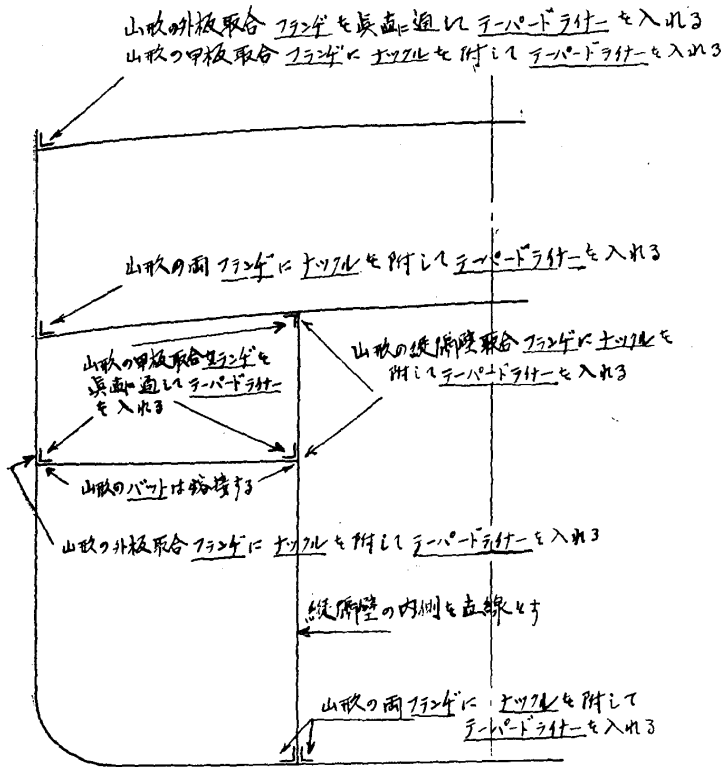 山形の外板取合フランヂを真直に通してテーパードライナーを入れる
山形の甲板取合フランヂにナックルを附してテーパードライナーを入れる
山形の両フランヂにナックルを附してテーパードライナーを入れる
山形の甲板取合フランヂを
真直に通してテーパードライナー
を入れる
山形の縦隔壁取合フランヂにナックルを
附してテーパードライナーを入れる
山形のバットは鎔接する
山形の外板取合フランヂにナックルを附してテーパードライナーを入れる
縦隔壁の内側を直線とす
山形の両フランヂにナックルを附して
テーパードライナーを入れる